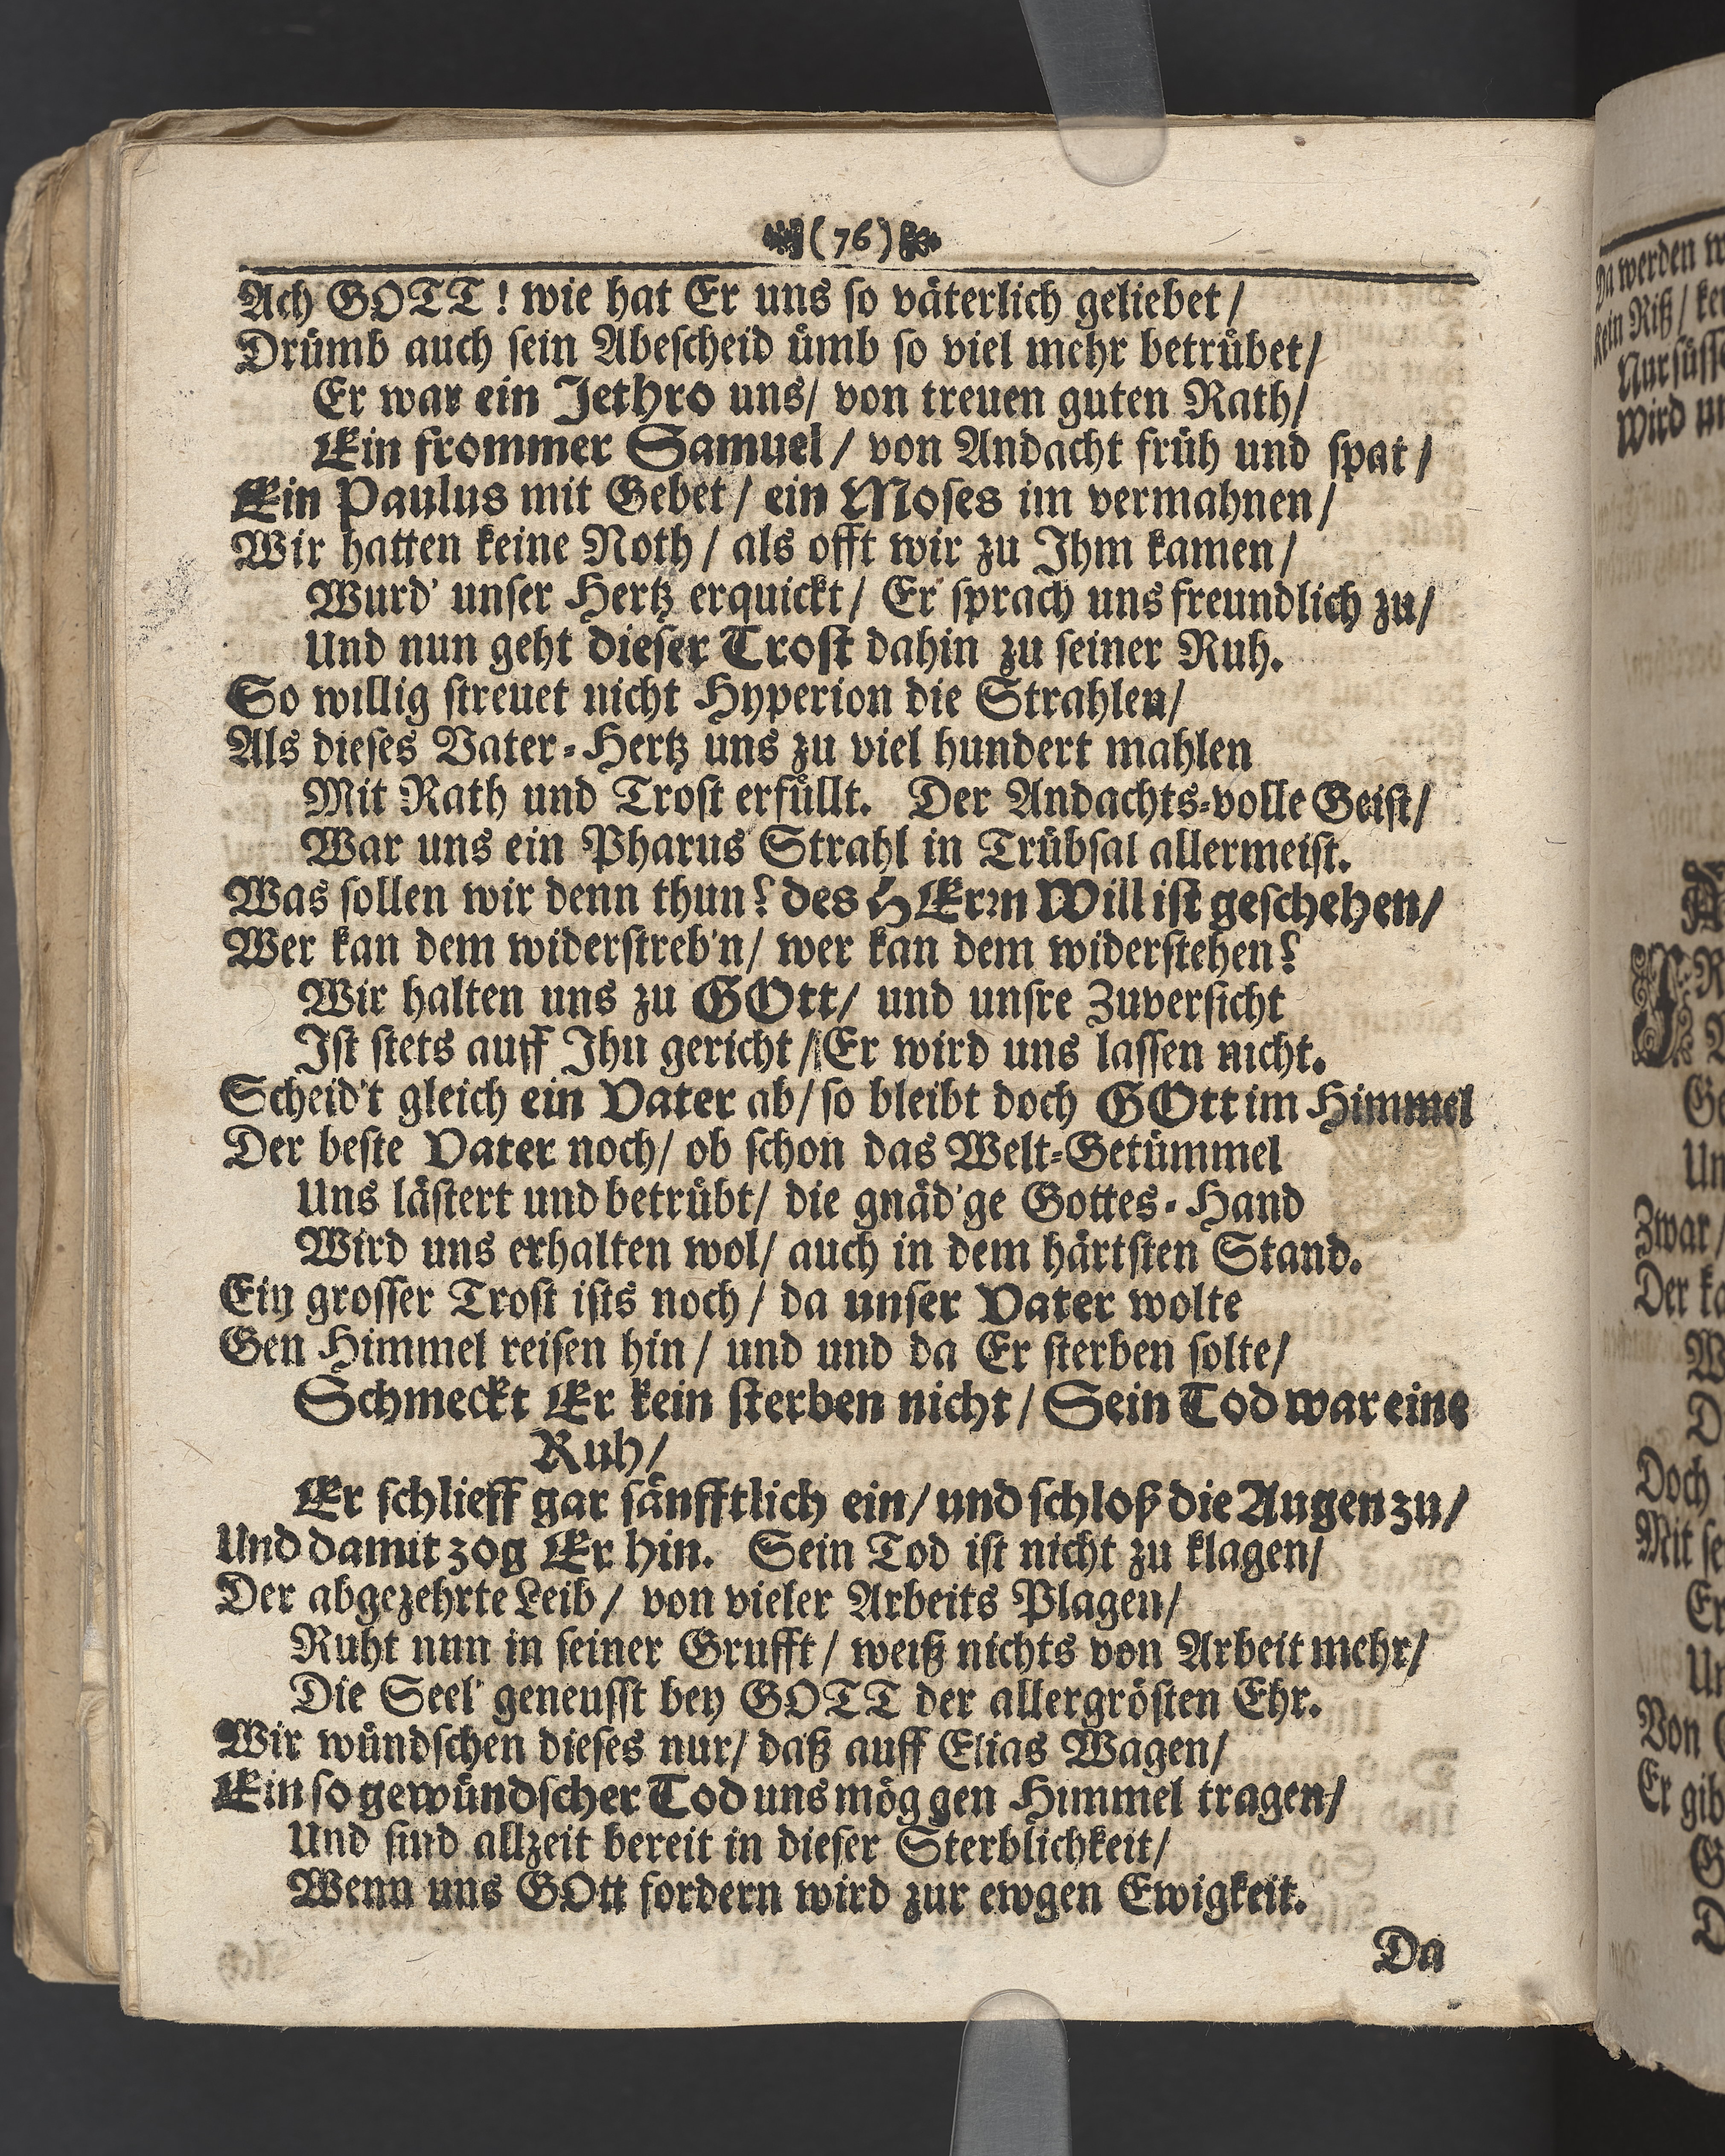 (76)
Ach GOTT! wie hat Er uns ſo våterlich geliebet/
Drůmb auch ſein Abeſcheid ůmb ſo viel mehr betrůbet/
Er war ein Jethro uns/ von treuen guten Rath/
Ein frommer Samuel/ von Andacht früh und ſpat/
Ein Paulus mit Gebet/ ein Moſes im vermahnen/
Wir hatten keine Noth/ als offt wir zu Ihm kamen/
Wurd' unſer Hertz erquickt/ Er ſprach uns freundlich zu/
Und nun geht dieſer Troſt dahin zu ſeiner Ruh.
So willig ſtreuet nicht Hyperion die Strahlen/
Als dieſes Vater-Hertz uns zu viel hundert mahlen
Mit Rath und Troſt erfůllt. Der Andachts-volle Geiſt/
War uns ein Pharus Strahl in Trůbſal allermeiſt.
Was ſollen wir denn thun? des HErꝛn Will iſt geſchehen/
Wer kan dem widerſtreb'n/ wer kan dem widerſtehen?
Wir halten uns zu GOtt/ und unſre Zuverſicht
Iſt ſtets auff Ihn gericht/ Er wird uns laſſen nicht.
Scheid't gleich ein Vater ab/ ſo bleibt doch GOtt im Himmel
Der beſte Vater noch/ ob ſchon das Welt-Getümmel
Uns låſtert und betrůbt/ die gnåd'ge Gottes-Hand
Wird uns erhalten wol/ auch in dem hårtſten Stand.
Ein groſſer Troſt iſts noch/ da unſer Vater wolte
Gen Himmel reiſen hin/ und und da Er ſterben ſolte/
Schmeckt Er kein ſterben nicht/ Sein Tod war eine
Ruh/
Er ſchlieff gar ſånfftlich ein/ und ſchloß die Augen zu/
Und damit zog Er hin. Sein Tod iſt nicht zu klagen/
Der abgezehrte Leib/ von vieler Arbeits Plagen/
Ruht nun in ſeiner Grufft/ weiß nichts von Arbeit mehr/
Die Seel' geneuſſt bey GOTT der allergröſten Ehr.
Wir wůndſchen dieſes nur/ daß auff Elias Wagen/
Ein ſo gewůndſcher Tod uns mög gen Himmel tragen/
Und ſind allzeit bereit in dieſer Sterblichkeit/
Wenn uns GOtt fordern wird zur ewgen Ewigkeit.
Da